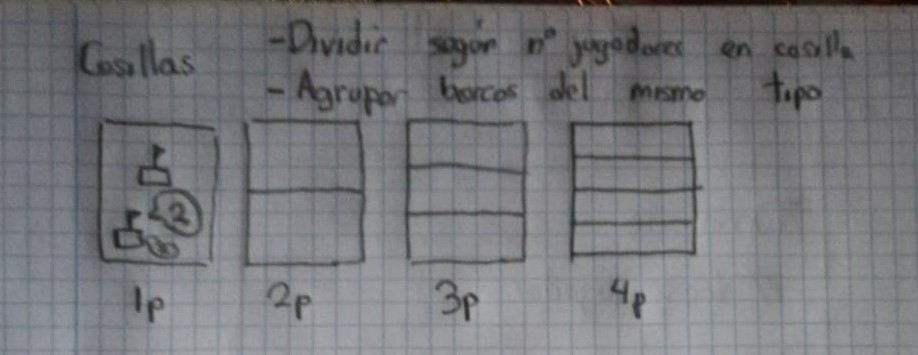 Casillas
-Dividir según nº jugadores en casilla
- Agrupar barcos del mismo tipo
2
1p 2p 3p 4p